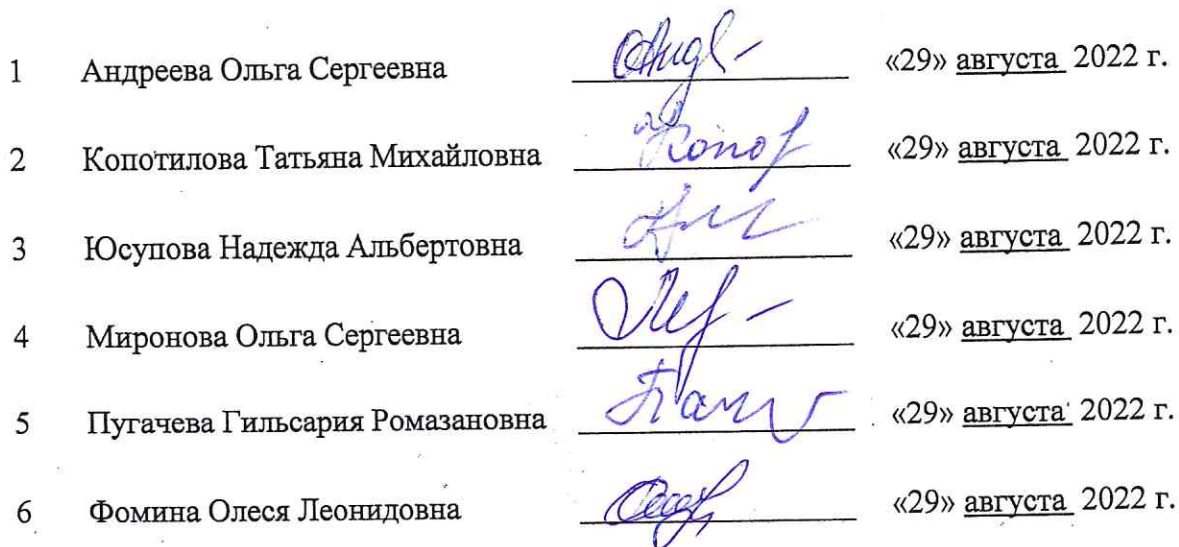 1 Андреева Ольга Сергеевна «29» августа 2022 г.
2 Копотилова Татьяна Михайловна «29» августа 2022 г.
3 Юсупова Надежда Альбертовна «29» августа 2022 г.
4 Миронова Ольга Сергеевна «29» августа 2022 г.
5 Пугачева Гильсария Ромазановна «29» августа 2022 г.
6 Фомина Олеся Леонидовна «29» августа 2022 г.